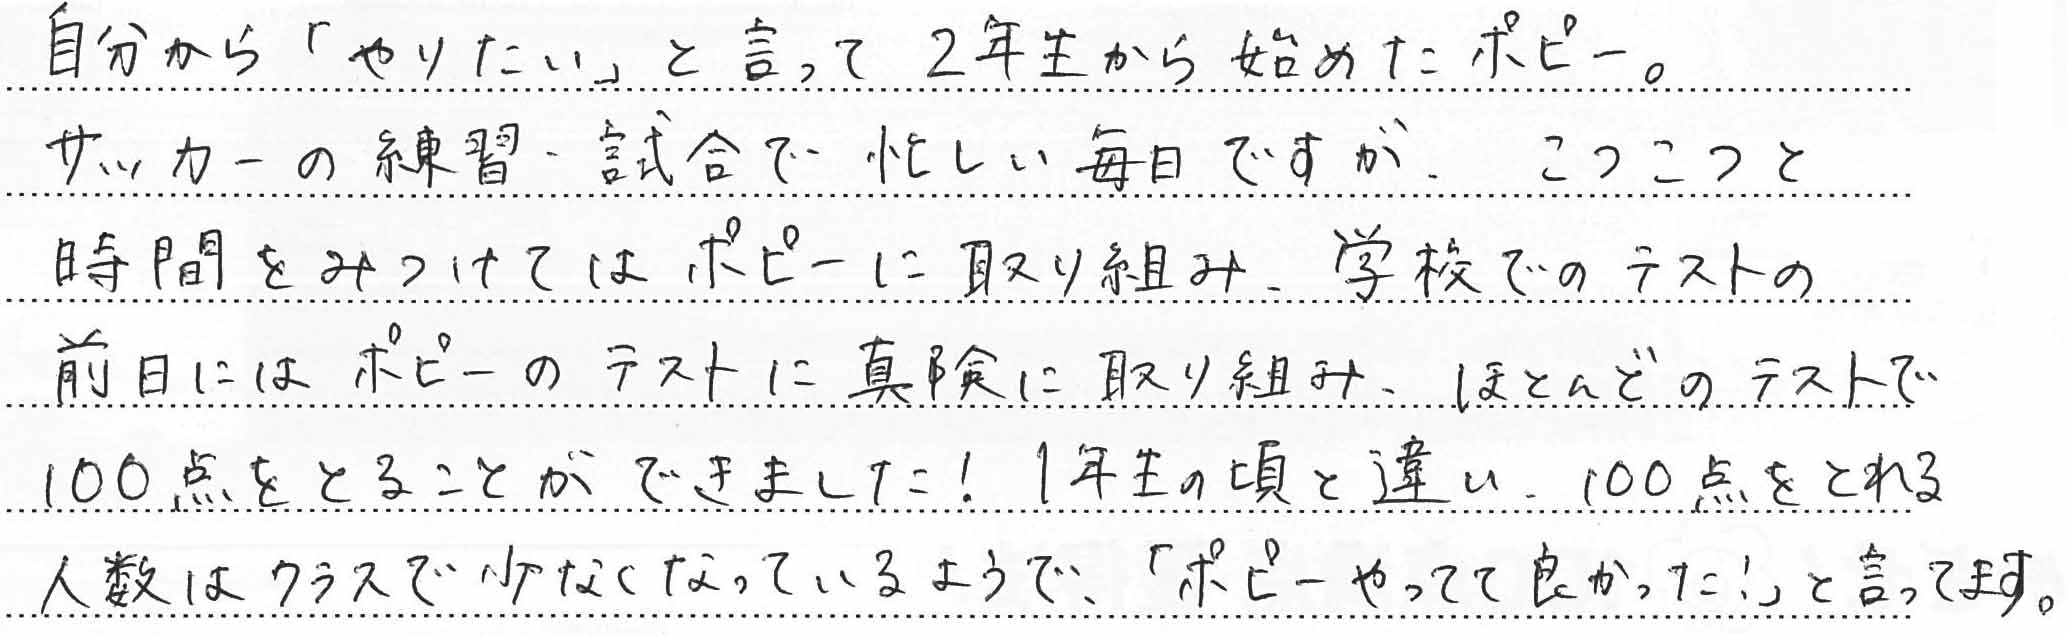 自分から「やりたい」と言って 2年生から始めたポピー。
サッカーの練習・試合で忙しい毎日ですが、こつこつと
時間をみつけてはポピーに取り組み、学校でのテストの
前日にはポピーのテストに真険に取り組み、ほとんどのテストで
100点をとることができました！1年生の頃と違い、100点をとれる
人数はクラスで少なくなっているようで、「ポピーやってて良かった！」と言ってます。